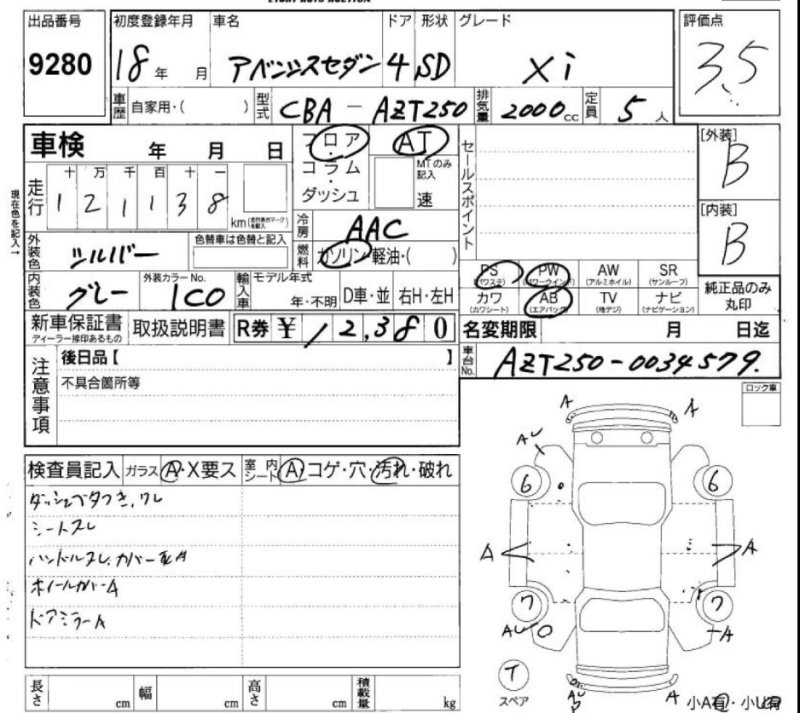 出品番号 初度登録年月 車名 ドア 形状 グレード 評価点
9280 18年 月 アベンシスセダン 4 SD Xi 3.5
車歴 自家用・( ) 型式 CBA-AZT250 排気量 2000cc 定員 5人
車検 年 月 日 フロア AT セールスポイント [外装]
コラム MTのみ記入 B
走行 十 万 千 百 十 一 ダッシュ 速
1 2 1 1 3 8 km [内装]
現在色を記入→ 冷房 AAC B
外装色 シルバー 色替車は色替と記入 燃料 ガソリン・軽油・( )
PS (パワステ) PW (パワーウインド) AW (アルミホイル) SR (サンルーフ) 純正品のみ丸印
内装色 グレー 外装カラーNo. 1C0 輸入車 モデル年式 年・不明 D車・並 右H・左H カワ (カワシート) AB (エアバッグ) TV (地デジ) ナビ (ナビゲーション)
新車保証書 ディーラー捺印あるもの 取扱説明書 R券 ¥12,380 名変期限 月 日迄
注意事項 後日品【 】 車台No. AZT250-0034579.
不具合箇所等 ロック車
検査員記入 ガラス A・X要ス 室内シート A・コゲ・穴・汚れ・破れ
ダッシュベタつき,ワレ
シートスレ
ハンドルスレ.カバー A
ホイールカバーA
ドアミラーA
A A
AU
6 6
A A
7 7
AU A
T
スペア
AU A
小A有・小U有
長さ cm 幅 cm 高さ cm 積載量 kg